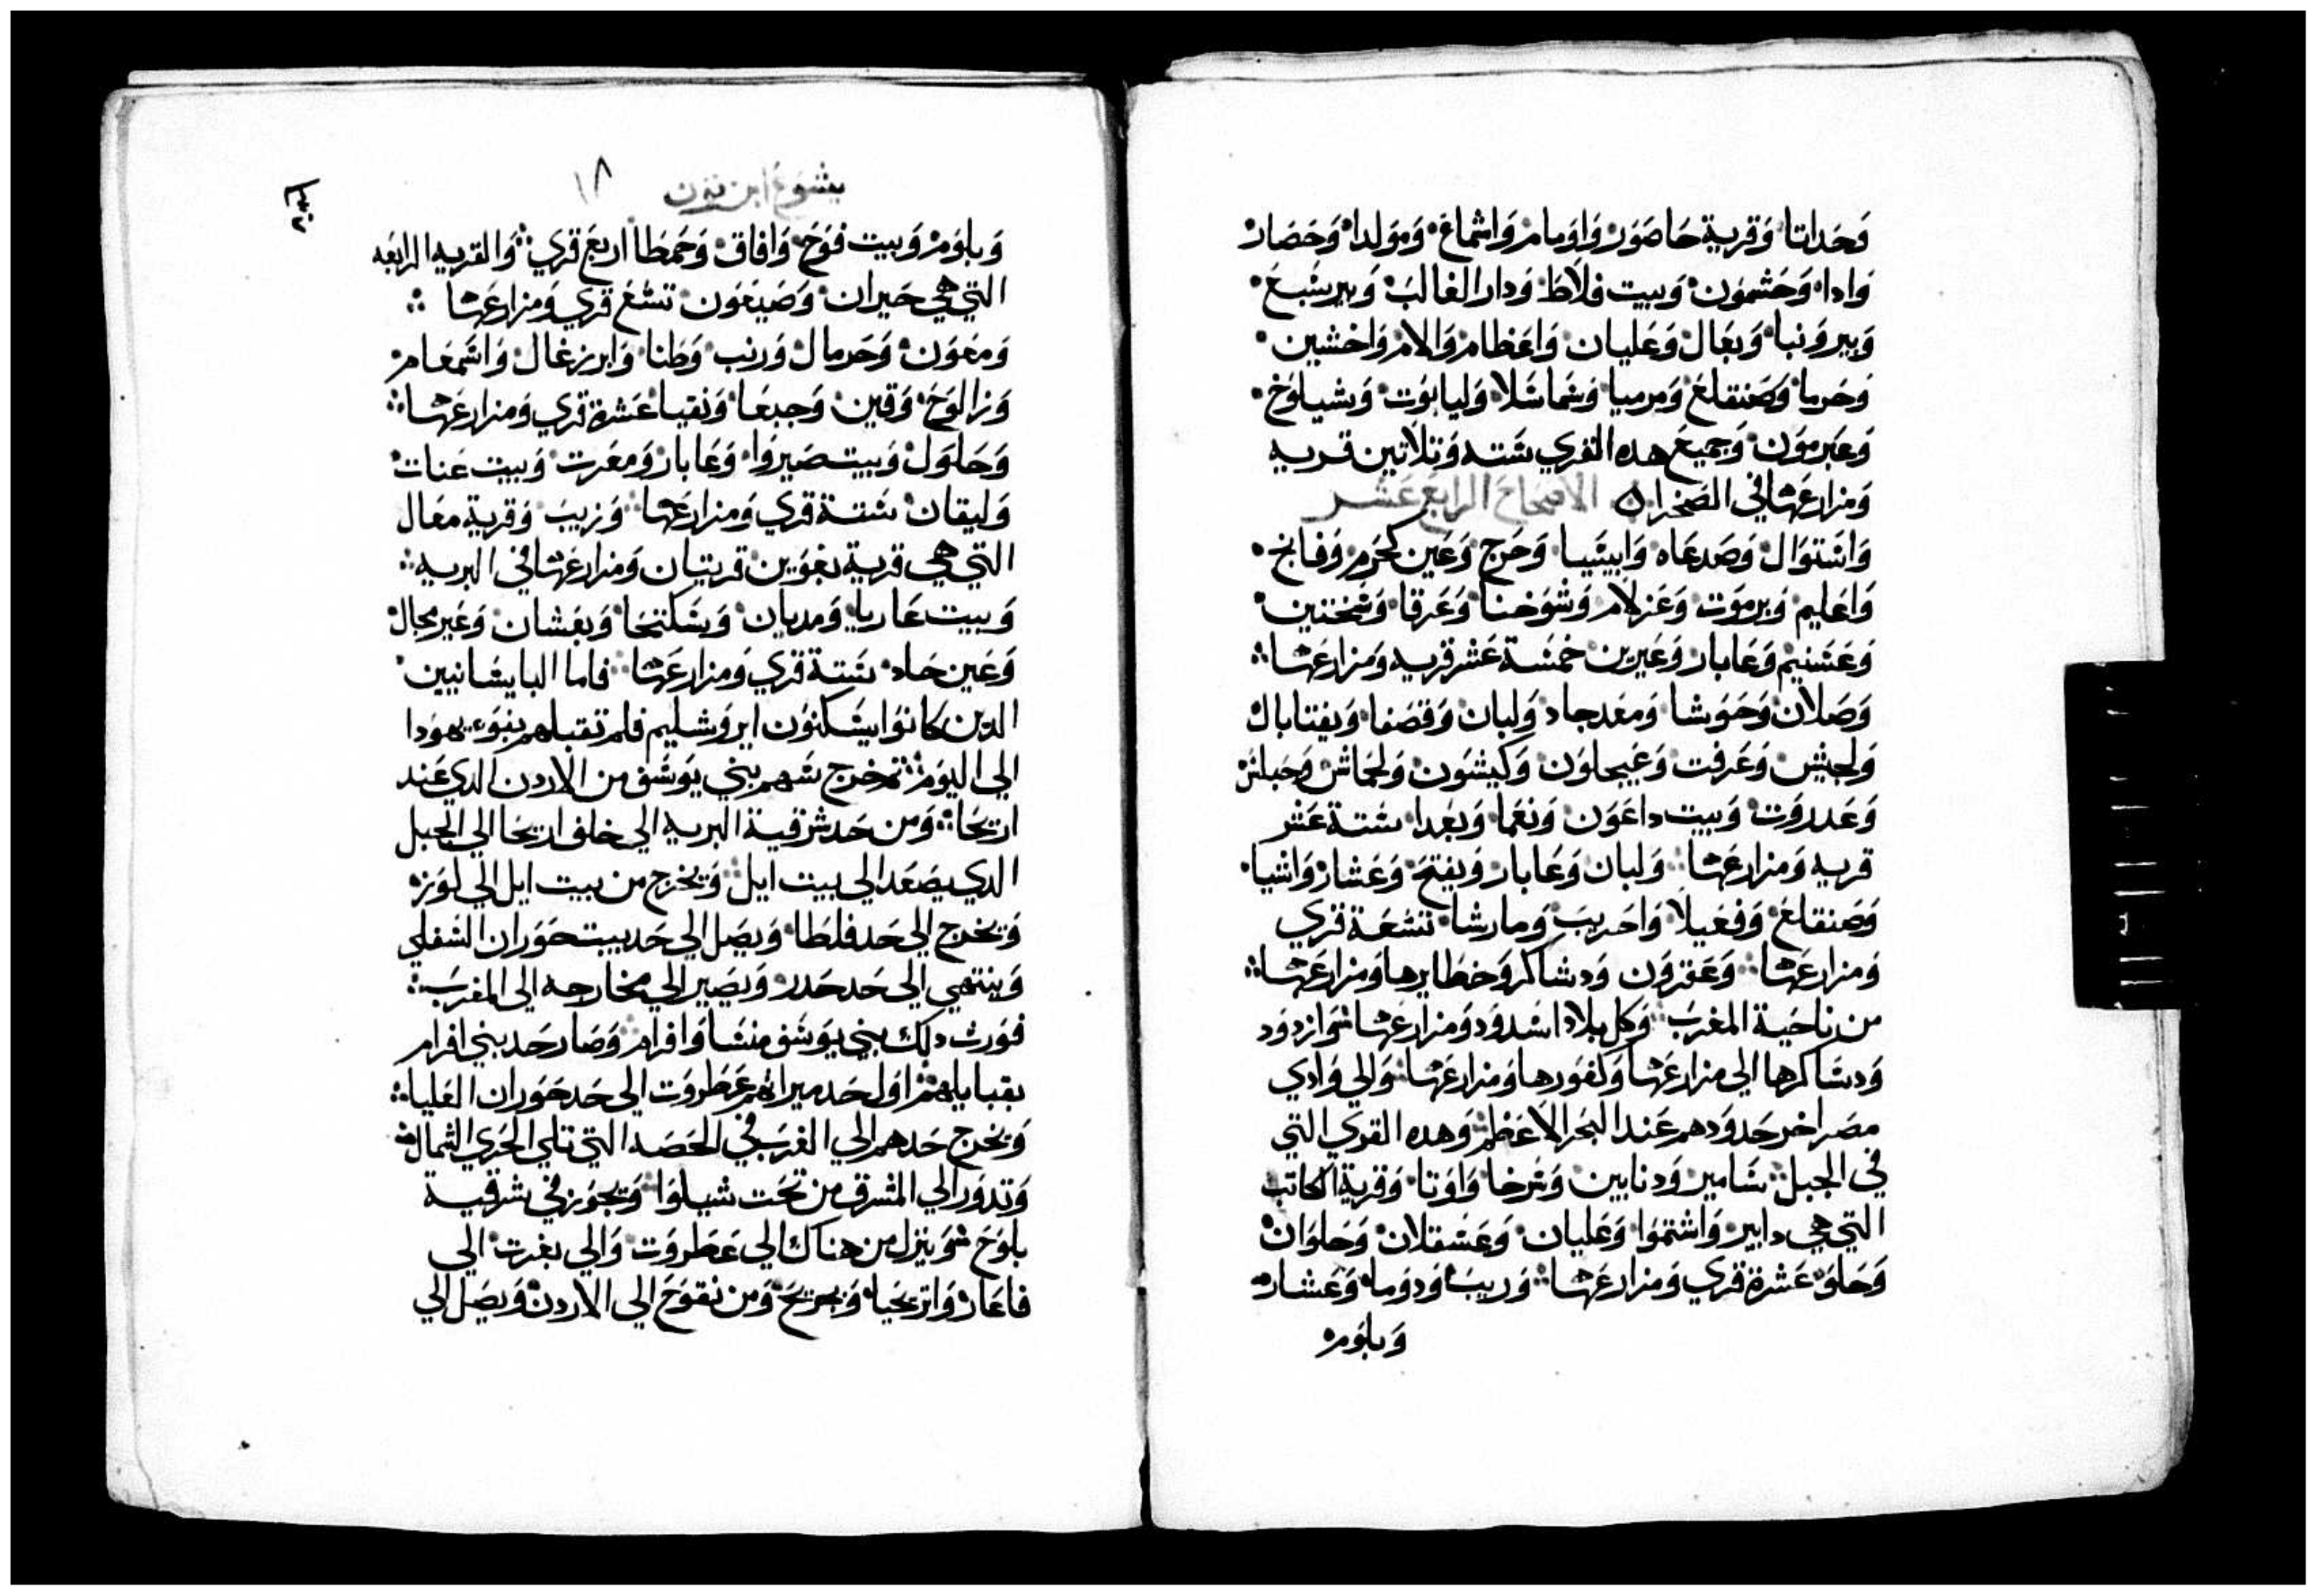 وحداتا وقرية حاصور واومام واشماع ومولدا وحصاد
وادا وحشمون وبيت فلاط ودار الغالب وبير شبع
وبيروتيا وبعال وعليان واعظام والام واخشين
وحرما وصنقلاغ ومرميا وشماشلا وليابوت وشيلوخ
وعبرمون وجميع هده القري ستة وتلاتين قريه
ومزارعها في الصحرا الاصحاح الرابع عشر
واشتوال وصدعاه وابيشيا وحرج وعين كحرم وفابخ
واعليم ويرموت وعزلام وشوخنا وعرقا وشختين
وعشنيم وعابار وعيرين خمسة عشر قريه ومزارعها
وصلان وحوشا ومعدجاد ولبان وقصفا ويفتابال
ولجيش وعرفت وعيجلون وكيشون ولحماش وحبلش
وعدروت وبيت داعون ونعما وبعدا ستة عشر
قريه ومزارعها ولبان وعابار ويفتح وعشار واشيا
وصنقلاغ وفعيلا واحريب ومارشا تسعة قري
ومزارعها وعقرون ودساكر وحظايرها ومزارعها
من ناحية المغرب وكل بلاد اسدود ومزارعها سوازدود
ودساكرها الي مزارعها وكفورها ومزارعها والي وادي
مصر اخر حدودهم عند البحر الاعظم وهده القري التي
في الجبل شامير ودنايين وشرخا واوتا وقرية الكاتب
التي هي دابير واشتموا وعليان وعسقلان وحلوان
وحلو عشرة قري ومزارعها وريب ودوما وعشار
وبلوم
يشوع ابن نون ١٨
وبلوم وبيت فوح وافاق وحمطا اربع قري والقريه الرابعه
التي هي حيران وصيغون تسع قري ومزارعها
ومعون وحرمال ورنب وطنا وابرزعال واشمعام
وزالوح وقين وجبعا ونقيا عشرة قري ومزارعها
وحلول وبيت صيروا وعابار ومعرت وبيت عنات
وليقان ستة قري ومزارعها وزيب وقرية معال
التي هي قرية بغوين قريتان ومزارعها في البريه
وبيت عاريا ومديان وشكتحا وبعشان وعير محال
وعين حاد ستة قري ومزارعها فاما البايسانيين
الدين كانوا يسكنون ايروشليم فلم تقبلهم بنوء يهودا
الي اليوم تم خرج سهم بني يوسف من الاردن الدي عند
اريحا ومن حد شرقية البريه الي خلف اريحا الي الجبل
الدي يصعد الي بيت ايل ويخرج من بيت ايل الي لوزه
ويخرج الي حد فلطا ويصل الي حد بيت حوران السفلي
وينتهي الي حد حدر ويصير الي مخارجه الي المغرب
فورث دلك بني يوسف منسا وافرام وصار حد بني افرام
بقبايلهم اول حد ميراتهم عطروت الي حد حوران العليا
ويخرج حدهم الي الغرب في الحصه التي تلي الجري الشمال
وتدور الي المشرق من تحت شيلوا وتجوز في شرقية
بلوح وينزل من هناك الي عطروت والي بغرت الي
فاعار واتريحيا وبيريح ومن نقوح الي الاردن ويصل الي